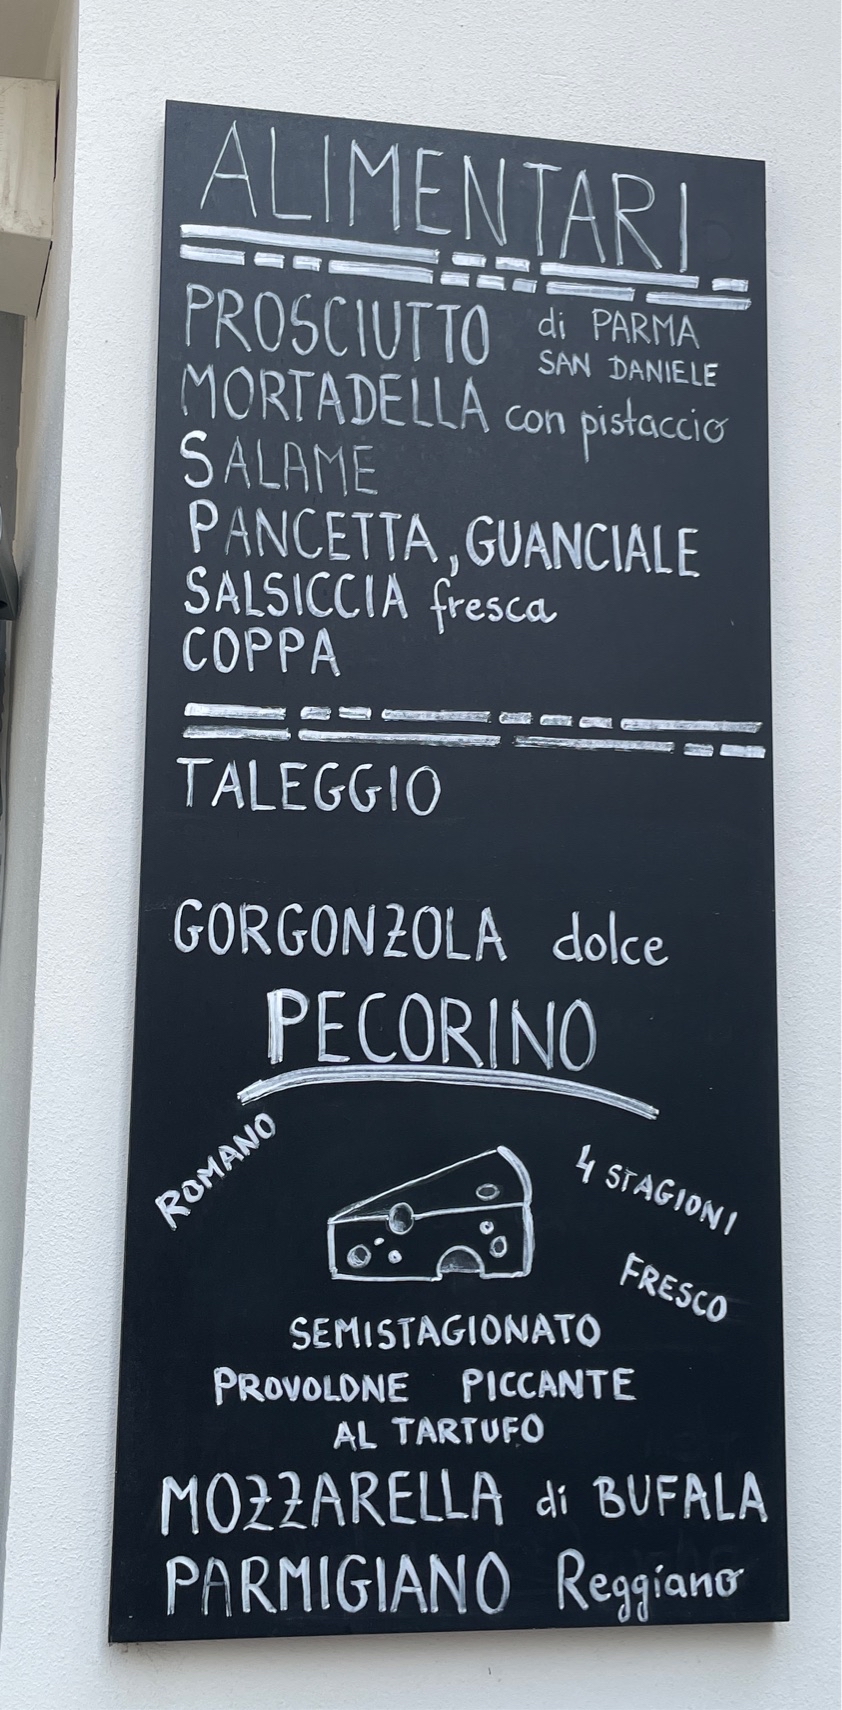 ALIMENTARI
PROSCIUTTO di PARMA
SAN DANIELE
MORTADELLA con pistaccio
SALAME
PANCETTA, GUANCIALE
SALSICCIA fresca
COPPA
TALEGGIO
GORGONZOLA dolce
PECORINO
ROMANO
4 STAGIONI
FRESCO
SEMISTAGIONATO
PROVOLONE PICCANTE
AL TARTUFO
MOZZARELLA di BUFALA
PARMIGIANO Reggiano